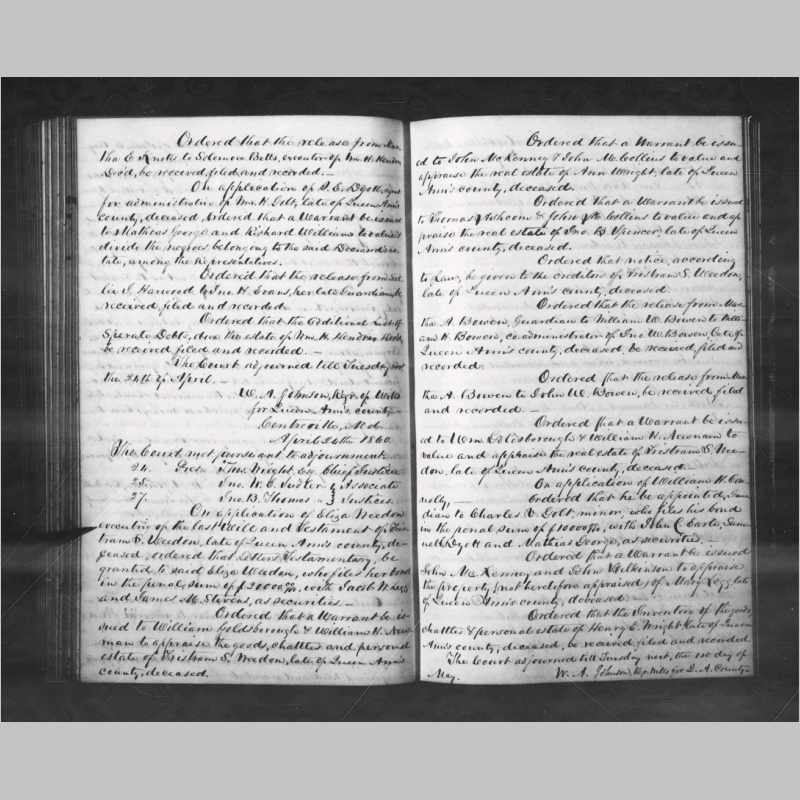 Ordered that the release from Mar
tha E Knotts to Solomon Betts, executor of Wm. H.
Decd, be received, filed and recorded.—
On application of S. E.
for administration of Wm. H. Dolt, late of Queen Ann's
county, deceased, Ordered that a Warrant be issued
to Mathias George and Richard Williams to value &
divide the negroes belonging to the said Deceased's es
tate, among the Representatives.
Ordered that the release from
lia J. Harwood to Jno. H. Evans, her late Guardian, be
received, filed and recorded.
Ordered that the Additional List of
Sperate Debts, due the estate of Wm. H.
be received filed and recorded.—
The Court adjourned till Tuesday next
the 24th of April.—
W. A. Johnson, Regr. of Wills
for Queen Ann's county
Centreville, Md.
April 24th 1860.
The Court met, pursuant to adjournment.
24. Pret. Thos. Wright, Esq. Chief Justice
25. Jno. W. E. } Associate
27. Jno. B. Thomas } Justices.
On application of Eliza Weedon
executor of the last Will and Testament of Tris
tram S. Weedon, late of Queen Ann's county, de
ceased, ordered that Letters Testamentary, be
granted to said Eliza Weedon, who files her bond
in the penal sum of $20000, with Jacob W.
and James M. Stevens, as securities.—
Ordered that a Warrant be is
sued to William Goldsborough & William H. New
nam to appraise the goods, chattles and personal
estate of Tristram S. Weedon, late of Queen Ann's
county, deceased.
Ordered that a Warrant be issu
ed to John McKenney & John McCollins to value and
appraise the real estate of Ann Wright, late of Queen
Ann's county, deceased.
Ordered that a Warrant be issued
to Thomas Ashcom & John McCollins to value and ap
praise the real estate of Jno. B. Spencer, late of Queen
Ann's county, deceased.
Ordered that notice, according
to Law, be given to the creditors of Tristram S. Weedon,
late of Queen Ann's county, deceased.
Ordered that the release from Mar
tha A. Bowen, Guardian to William W. Bowen to Willi
am H. Bowen, co-administrator of Jno W. Bowen, late of
Queen Ann's county, deceased, be received, filed and
recorded.
Ordered that the release from Mar
tha A. Bowen to John W. Bowen, be received, filed
and recorded.
Ordered that a Warrant be issu
ed to Wm. Goldsborough & William H. Newnam to
value and appraise the real estate of Tristram S. Wee
don, late of Queen Ann's county, deceased.
On application of William H. Con
nolly,— Ordered that he be appointed, Guar
dian to Charles E. Dolt, minor, who files his bond
in the penal sum of $10000, with John C. Earle, Sam
uel and Mathias George, as securities.—
Ordered that a Warrant be issued
John McKenney and John Wilkinson to appraise
the property (not heretofore appraised) of Mary Legg late
of Queen Ann's county, deceased.
Ordered that the Inventory of the goods,
chattles & personal estate of Henry C. Wright late of Queen
Ann's county, deceased, be received, filed and recorded
The Court adjourned till Tuesday next, the 1st day of
May. W. A. Johnson, Reg. Wills for Q. A. County